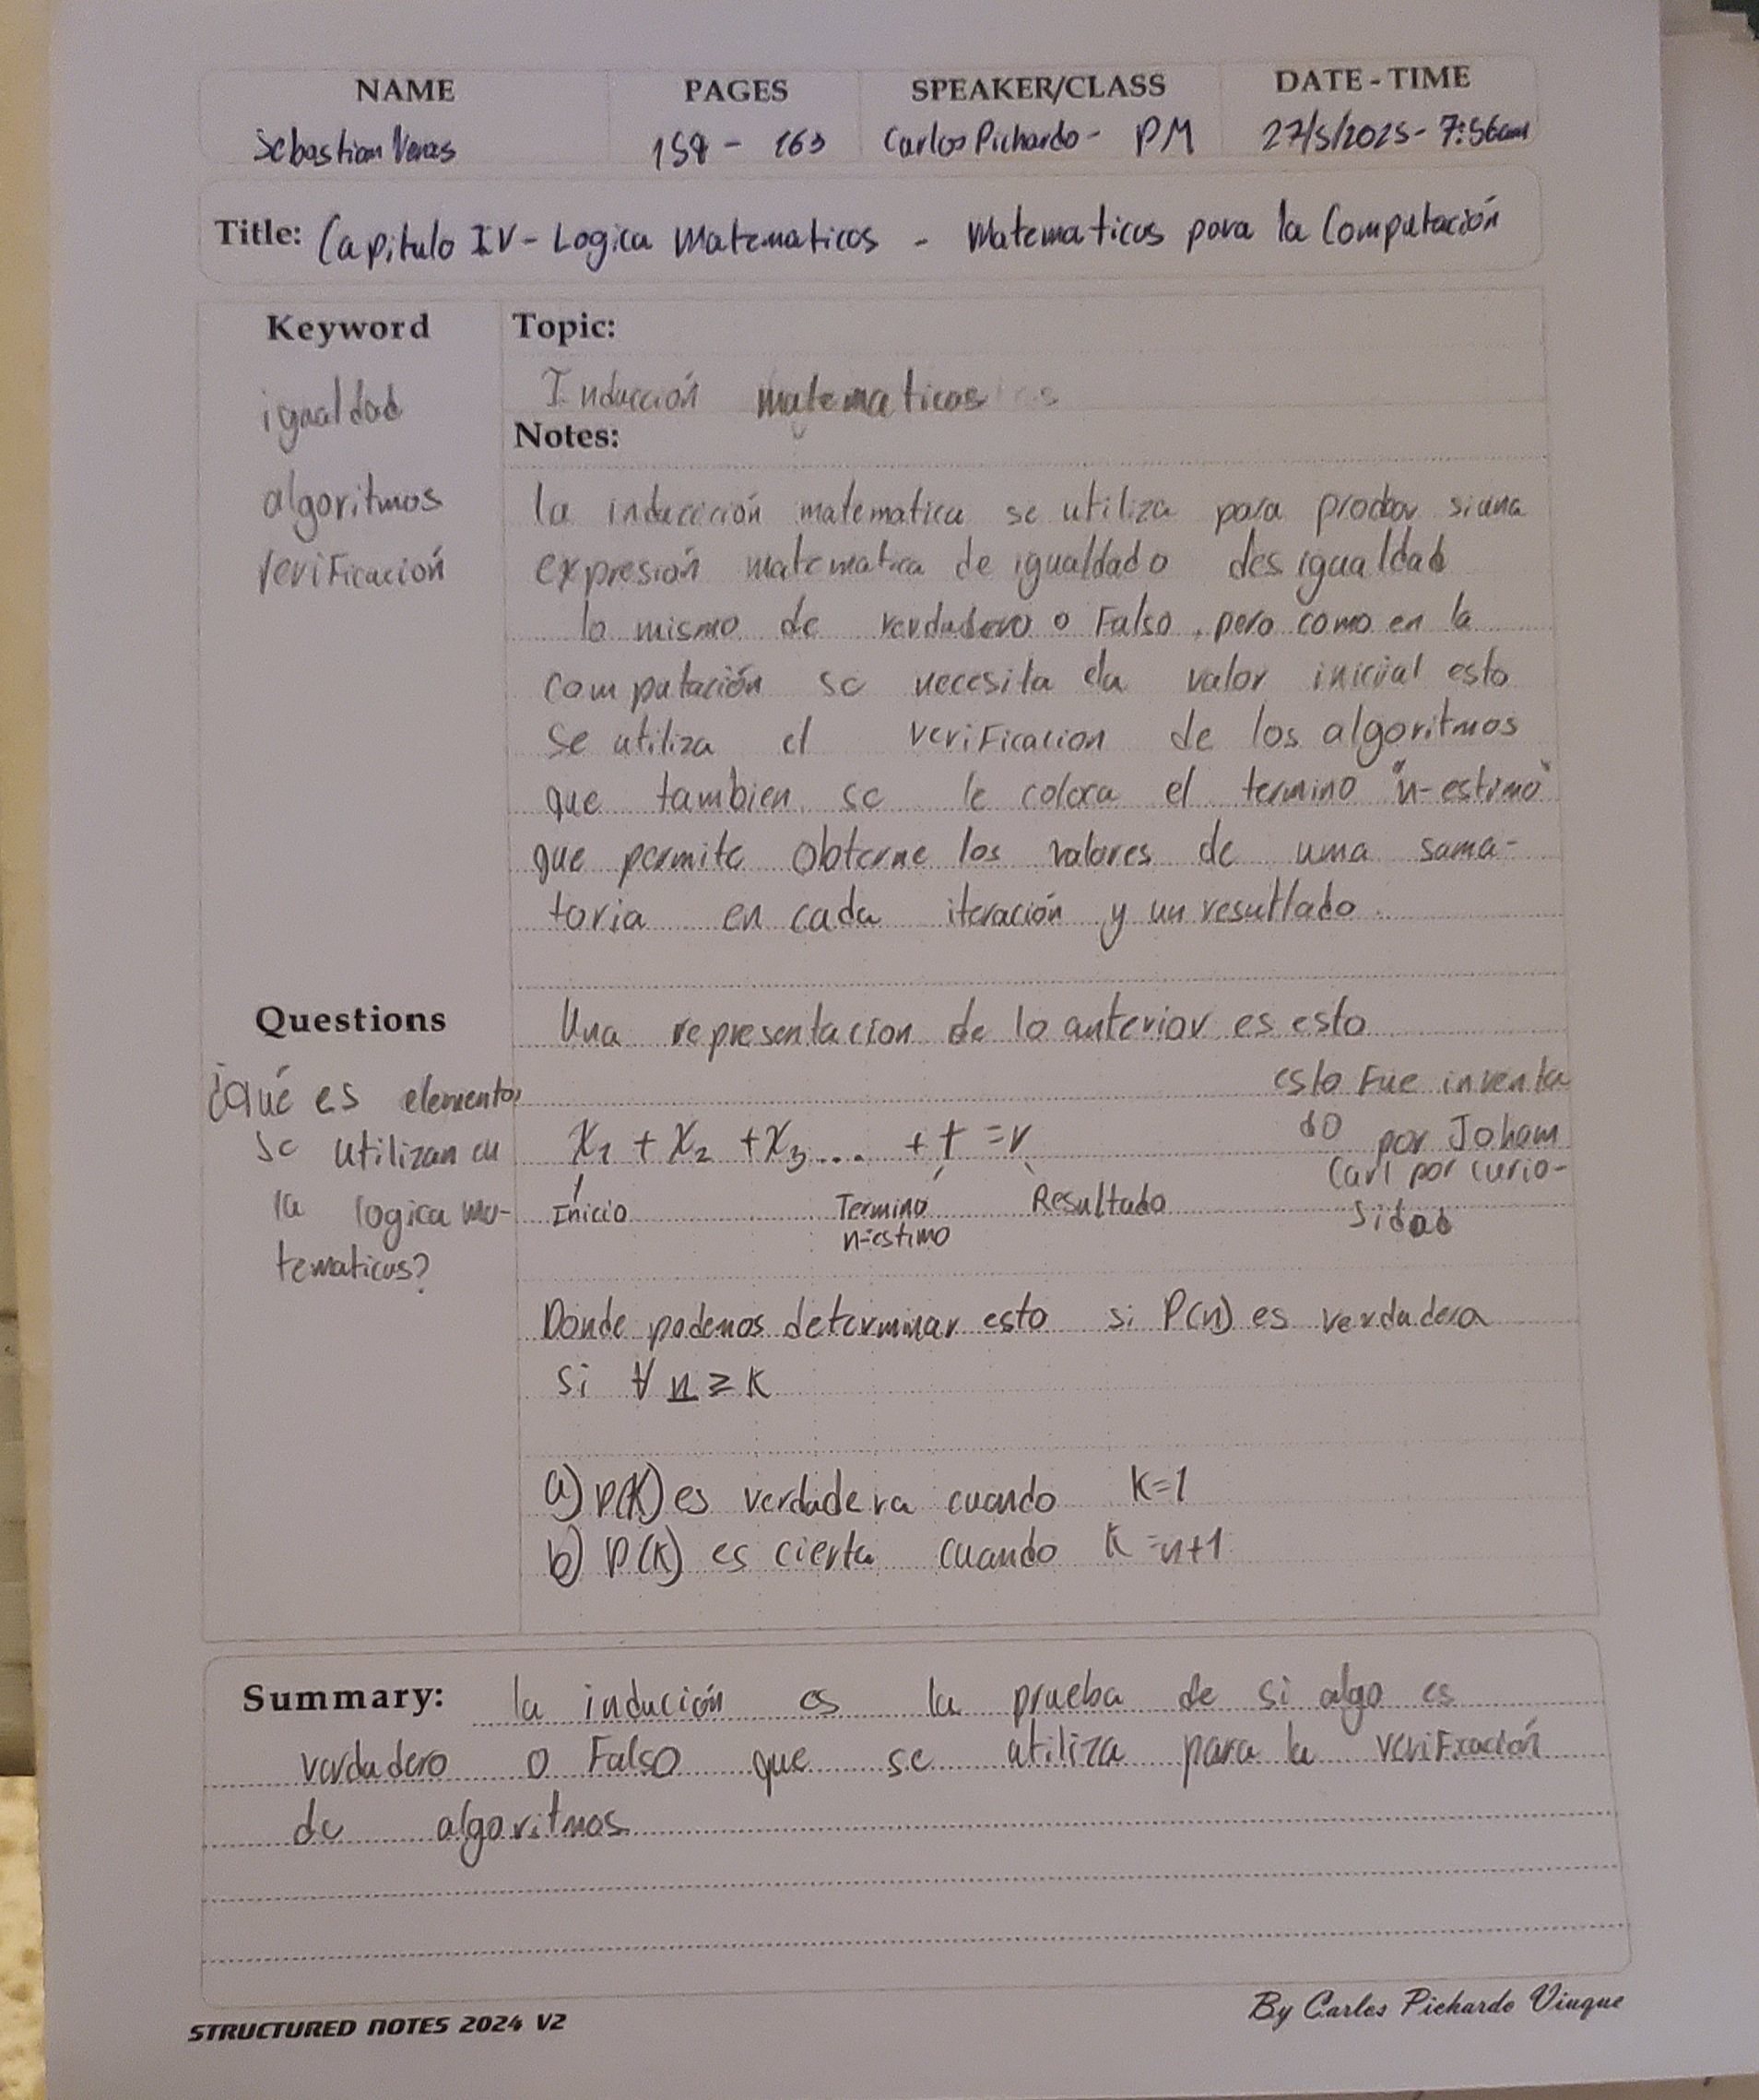 NAME PAGES SPEAKER/CLASS DATE - TIME
Sebastian Veras 159 - 163 Carlos Pichardo - PM 27/5/2025 - 7:56am
Title: Capitulo IV - Logica Matematicas - Matematicas para la Computación
Keyword
igualdad
algoritmos
verificación
Topic:
Inducción matematicas
Notes:
la inducición matematica se utiliza para probar si una
expresión matematica de igualdad o desigualdad
lo mismo de verdadero o Falso, pero como en la
computación se necesita da valor inicial esto
se utiliza el verificacion de los algoritmos
que tambien se le coloca el termino "n-estimo"
que permite obterne los valores de uma suma-
toria en cada iteración y un resultado.
Una representacion de lo anterior es esto
esto Fue inventa
do por Joham
Carl por curio-
sidad
X₁ + X₂ + X₃ .... + t = r
Inicio Termino Resultado
n-estimo
Donde podemos determinar esto si P(n) es verdadera
si ∀ n ≥ K
a) P(K) es verdadera cuando K=1
b) P(K) es cierta cuando K=n+1
Questions
¿Qué es elementos
se utilizan en
la logica ma-
tematicas?
Summary: la indución es la prueba de si algo es
verdadero o Falso que se utiliza para la verificación
de algoritmos
STRUCTURED NOTES 2024 V2
By Carlos Pichardo Viuque